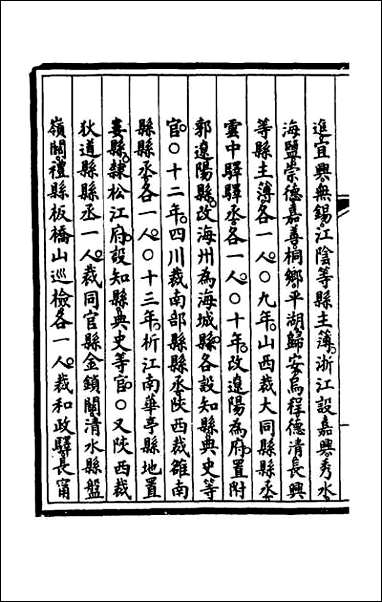 進宜興無錫江陰等縣主簿浙江設嘉興秀水
海鹽崇德嘉善桐鄉平湖歸安烏程德清長興
等縣主薄各一人〇九年山西裁大同縣縣丞
雲中驛驛丞各一人〇十年改遼陽為府置附
郭遼陽縣改海州為海城縣各設知縣典史等
官〇十二年四川裁南部縣縣丞陝西裁雒南
縣縣丞各一人〇十三年析江南華亭縣地置
婁縣隸松江府設知縣典史等官〇又陝西裁
狄道縣縣丞一人裁同官縣金鎖關清水縣盤
嶺關禮縣板橋山巡檢各一人裁和政驛長甯